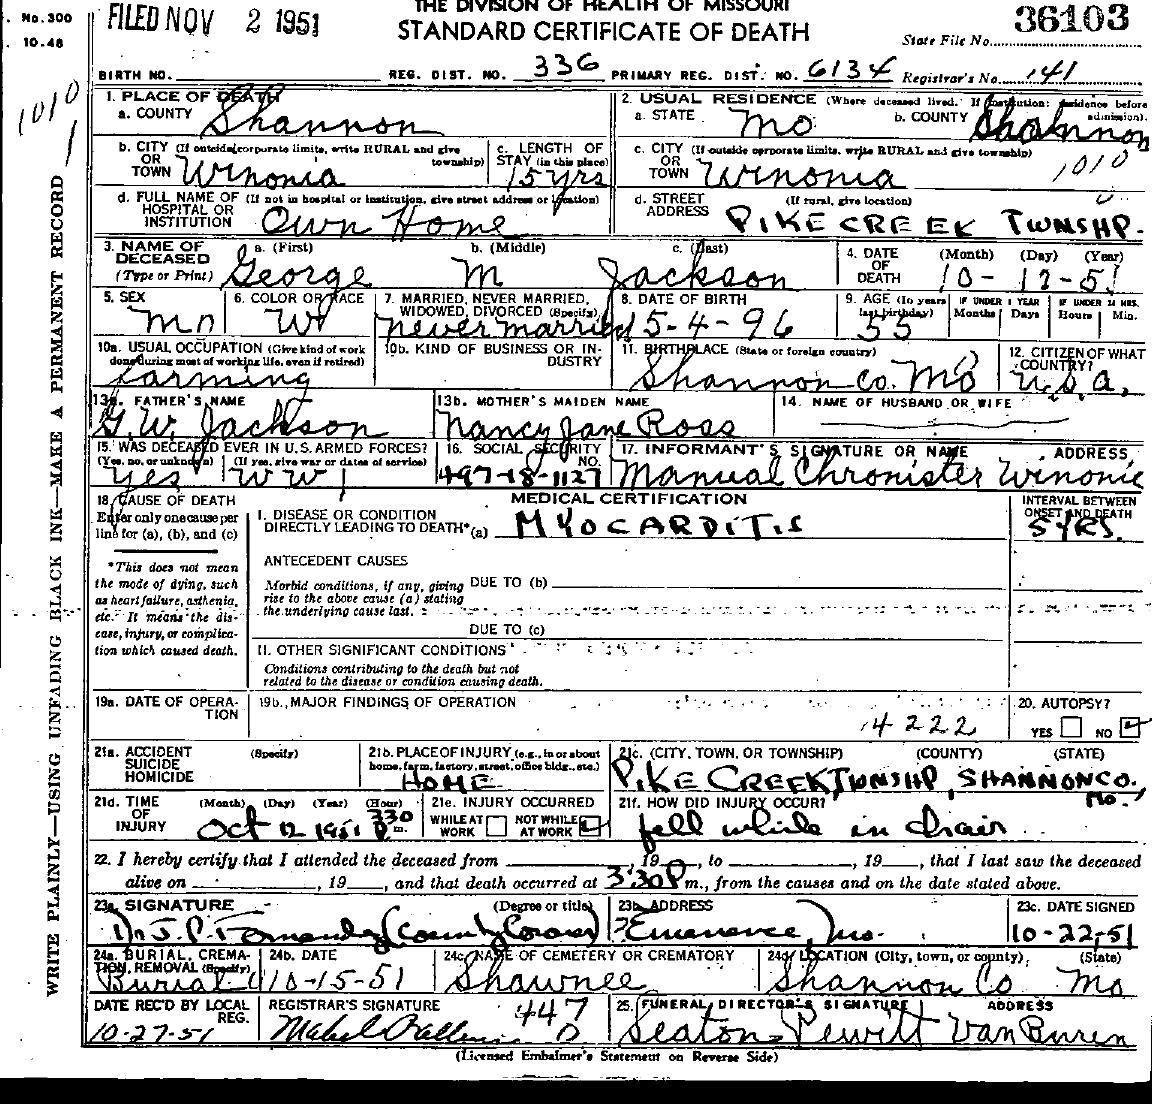 THE DIVISION OF HEALTH OF MISSOURI
No. 300
10-48
FILED NOV 2 1951
STANDARD CERTIFICATE OF DEATH
36103
State File No.
BIRTH NO. REG. DIST. NO. 336 PRIMARY REG. DIST. NO. 6134 Registrar's No. 141
1010
1
WRITE PLAINLY—USING UNFADING BLACK INK—MAKE A PERMANENT RECORD
1. PLACE OF DEATH
a. COUNTY Shannon
2. USUAL RESIDENCE (Where deceased lived. If institution: residence before admission).
a. STATE Mo. b. COUNTY Shannon
b. CITY (If outside corporate limits, write RURAL and give township)
OR
TOWN Winonia
c. LENGTH OF STAY (in this place)
15 yrs
c. CITY (If outside corporate limits, write RURAL and give township)
OR
TOWN Winonia
1010
d. FULL NAME OF (If not in hospital or institution, give street address or location)
HOSPITAL OR
INSTITUTION Own Home
d. STREET (If rural, give location)
ADDRESS PIKE CREEK TWNSHP.
3. NAME OF DECEASED
(Type or Print)
a. (First) b. (Middle) c. (Last)
George M Jackson
4. DATE OF DEATH (Month) (Day) (Year)
10-12-51
5. SEX
6. COLOR OR RACE
W
7. MARRIED, NEVER MARRIED, WIDOWED, DIVORCED (Specify)
never married
8. DATE OF BIRTH
5-4-96
9. AGE (In years last birthday)
55
IF UNDER 1 YEAR
Months Days
IF UNDER 24 HRS.
Hours Min.
10a. USUAL OCCUPATION (Give kind of work done during most of working life, even if retired)
Farming
10b. KIND OF BUSINESS OR INDUSTRY
11. BIRTHPLACE (State or foreign country)
Shannon Co. Mo
12. CITIZEN OF WHAT COUNTRY?
U.S.A.
13a. FATHER'S NAME
G.W. Jackson
13b. MOTHER'S MAIDEN NAME
Nancy Jane Ross
14. NAME OF HUSBAND OR WIFE
15. WAS DECEASED EVER IN U.S. ARMED FORCES?
(Yes, no, or unknown) (If yes, give war or dates of service)
Yes WW 1
16. SOCIAL SECURITY NO.
497-18-1127
17. INFORMANT'S SIGNATURE OR NAME ADDRESS
Manual Chronister Winonia
18. CAUSE OF DEATH
Enter only one cause per line for (a), (b), and (c)
*This does not mean the mode of dying, such as heart failure, asthenia, etc. It means the disease, injury, or complication which caused death.
MEDICAL CERTIFICATION
I. DISEASE OR CONDITION
DIRECTLY LEADING TO DEATH*(a) MYOCARDITIS
INTERVAL BETWEEN ONSET AND DEATH
5 YRS.
ANTECEDENT CAUSES
Morbid conditions, if any, giving rise to the above cause (a) stating the underlying cause last.
DUE TO (b)
DUE TO (c)
II. OTHER SIGNIFICANT CONDITIONS
Conditions contributing to the death but not related to the disease or condition causing death.
19a. DATE OF OPERATION
19b. MAJOR FINDINGS OF OPERATION
4222
20. AUTOPSY?
YES NO
21a. ACCIDENT (Specify)
SUICIDE
HOMICIDE
21b. PLACE OF INJURY (e.g., in or about home, farm, factory, street, office bldg., etc.)
HOME
21c. (CITY, TOWN, OR TOWNSHIP) (COUNTY) (STATE)
PIKE CREEK TWNSHP, SHANNON CO. Mo.
21d. TIME OF INJURY (Month) (Day) (Year) (Hour)
Oct 12 1951 330 P m.
21e. INJURY OCCURRED
WHILE AT WORK NOT WHILE AT WORK
21f. HOW DID INJURY OCCUR?
fell while in chair
22. I hereby certify that I attended the deceased from , 19 , to , 19 , that I last saw the deceased
alive on , 19 , and that death occurred at 3:30 P m., from the causes and on the date stated above.
23a. SIGNATURE (Degree or title)
(County Coroner)
23b. ADDRESS
Eminence, Mo.
23c. DATE SIGNED
10-22-51
24a. BURIAL, CREMATION, REMOVAL (Specify)
Burial
24b. DATE
10-15-51
24c. NAME OF CEMETERY OR CREMATORY
Shawnee
24d. LOCATION (City, town, or county) (State)
Shannon Co Mo
DATE REC'D BY LOCAL REG.
10-27-51
REGISTRAR'S SIGNATURE
Mabel
447
25. FUNERAL DIRECTOR'S SIGNATURE ADDRESS
Seaton Pewitt Van Buren
(Licensed Embalmer's Statement on Reverse Side)